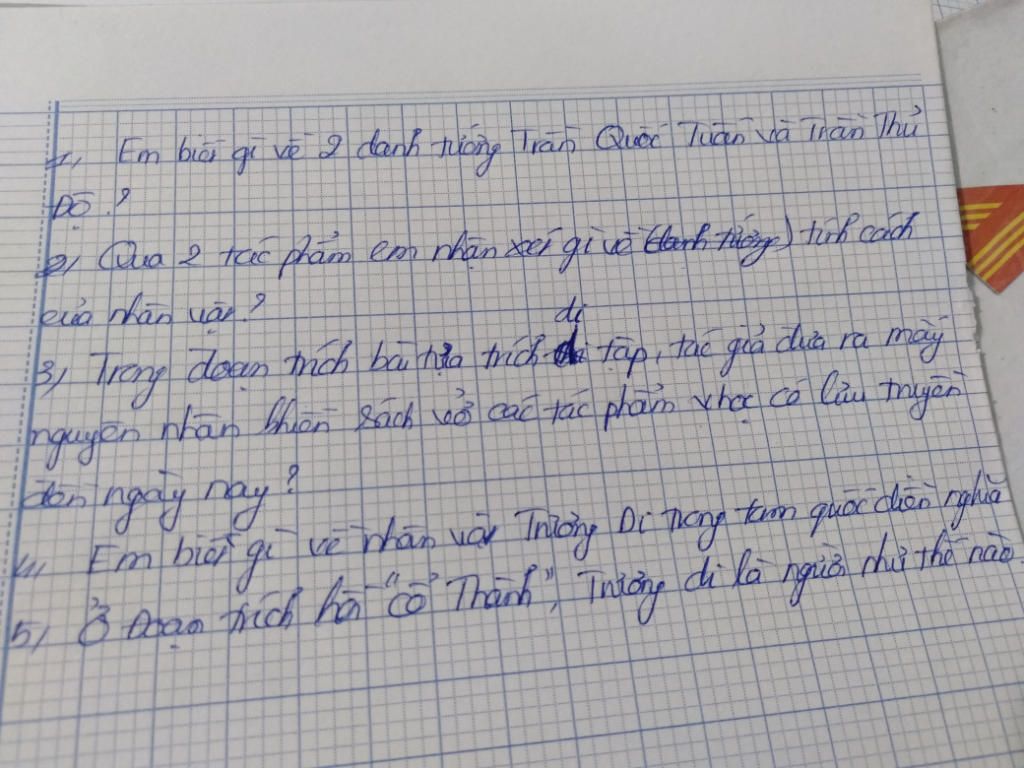 1, Em biết gì về 2 danh tướng Trần Quốc Tuấn và Trần Thủ
Độ?
2, Qua 2 tác phẩm em nhận xét gì về (danh tướng) tính cách
của nhân vật?
di
3, Trong đoạn trích bài tựa trích di tập, tác giả đưa ra mấy
nguyên nhân khiến sách vở các tác phẩm vhọc có lưu truyền
đến ngày nay?
4, Em biết gì về nhân vật Trương Di trong tam quốc diễn nghĩa
5, Ở Đoạn trích hồi "cổ Thành", Trương di là người như thế nào